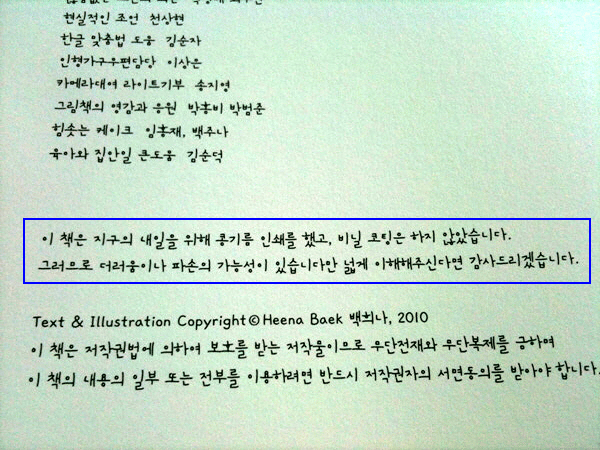 현실적인 조언 천상현
한글 맞춤법 도움 김순자
인형가구우편담당 이상은
카메라대여 라이트기부 송지영
그림책의 영감과 응원 박홍비 박범준
힘솟는 케이크 임홍재, 백주나
육아와 집안일 큰도움 김순덕
이 책은 지구의 내일을 위해 콩기름 인쇄를 했고, 비닐 코팅은 하지 않았습니다.
그러므로 더러움이나 파손의 가능성이 있습니다만 넓게 이해해주신다면 감사드리겠습니다.
Text & Illustration Copyright©Heena Baek 백희나, 2010
이 책은 저작권법에 의하여 보호를 받는 저작물이므로 무단전재와 무단복제를 금하며
이 책의 내용의 일부 또는 전부를 이용하려면 반드시 저작권자의 서면동의를 받아야 합니다.